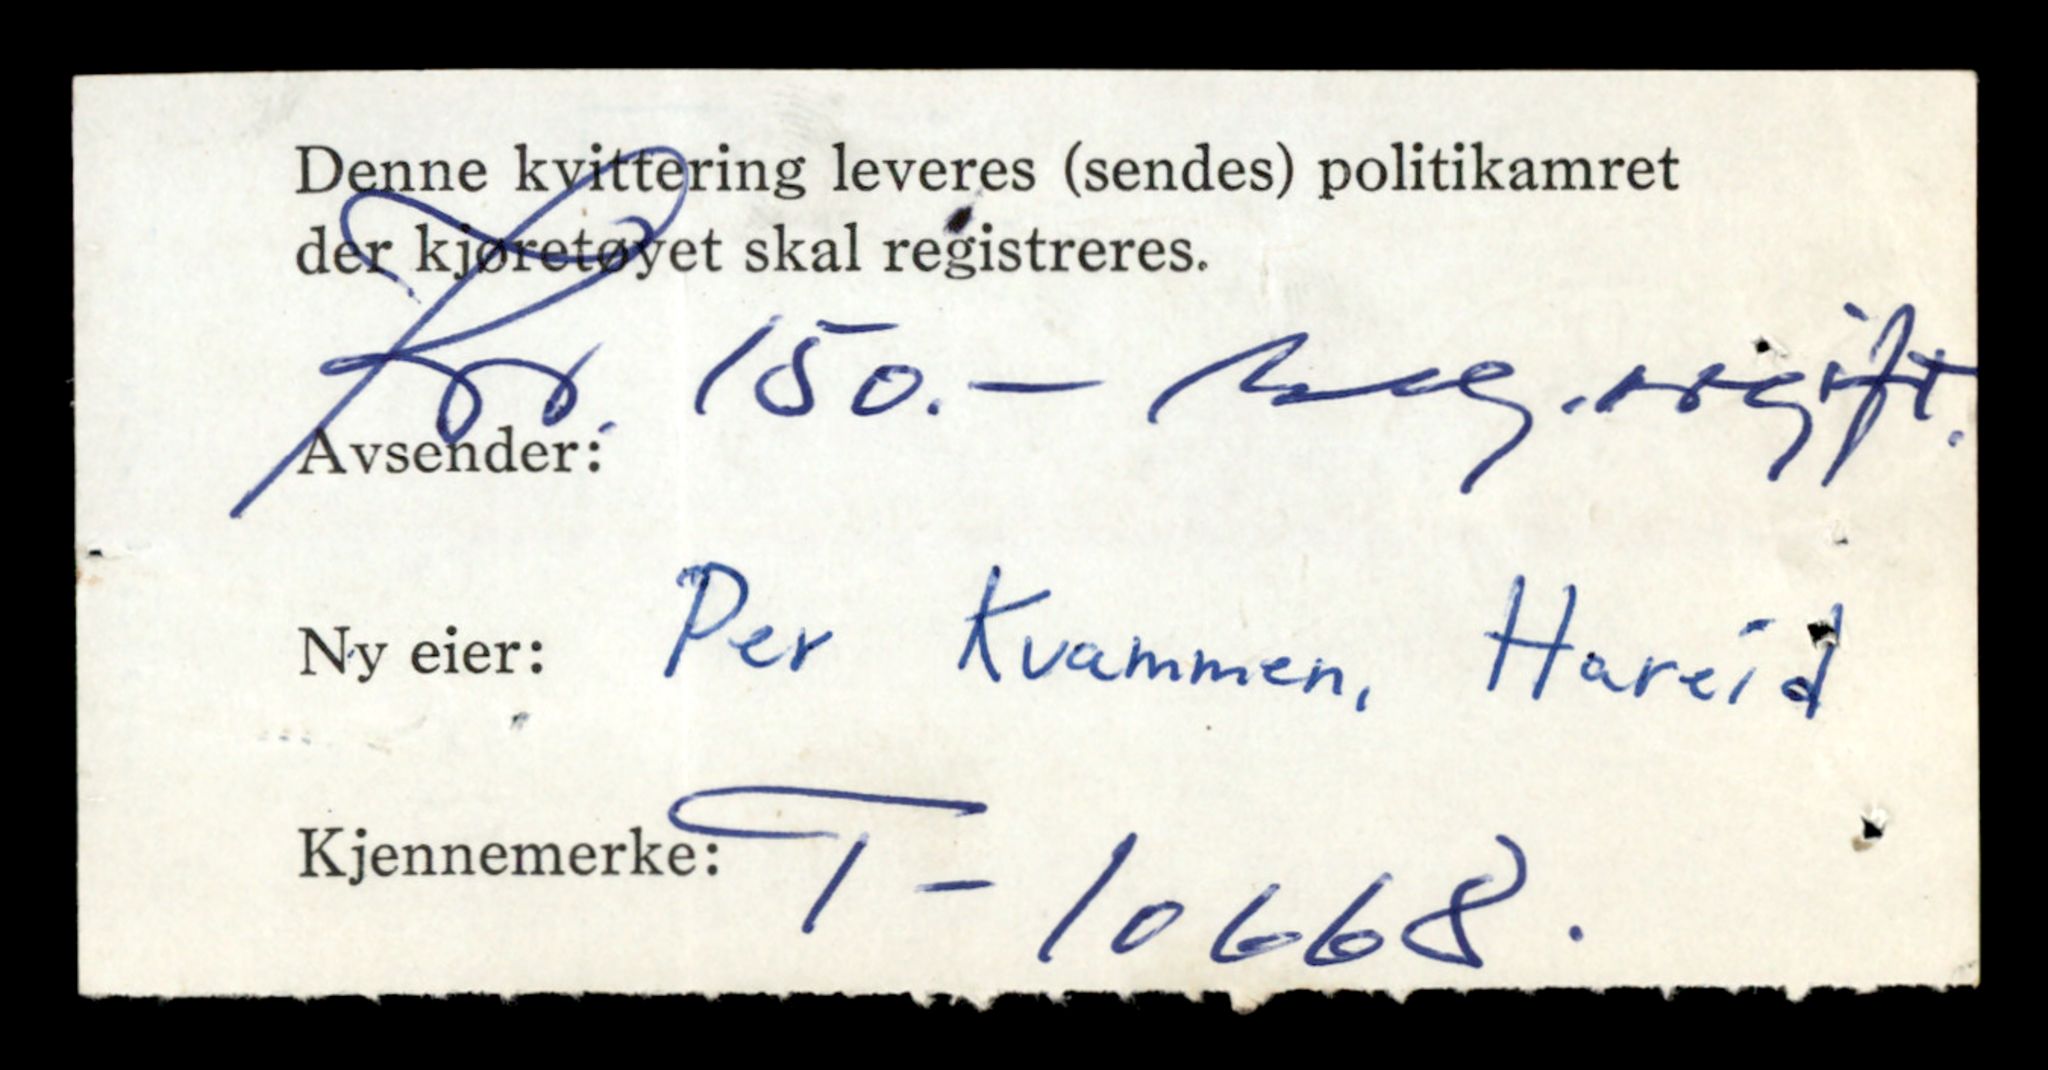 Denne kvittering leveres (sendes) politikamret
der kjøretøyet skal registreres.
Kr. 150.-
Avsender:
Ny eier: Per Kvammen, Hareid
Kjennemerke: T - 10668.